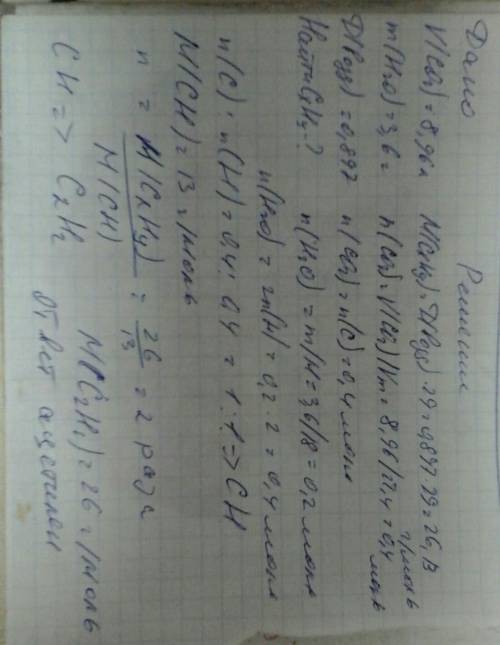 Дано
Решение
V(CO2) = 8,96л
m(H2O) = 3,6г
D(возд) = 0,897
Найти CxHy-?
M(CxHy) = D(возд)·29 = 0,897·29 = 26,13 г/моль
n(CO2) = V(CO2)/Vm = 8,96/22,4 = 0,4 моль
n(CO2) = n(C) = 0,4 моль
n(H2O) = m/M = 3,6/18 = 0,2 моль
n(H2O) = 2n(H) = 0,2·2 = 0,4 моль
n(C) : n(H) = 0,4 : 0,4 = 1:1 => CH
M(CH) = 13 г/моль
n = M(CxHy)/M(CH) = 26/13 = 2 раза
CH => C2H2
M(C2H2) = 26 г/моль
Ответ ацетилен